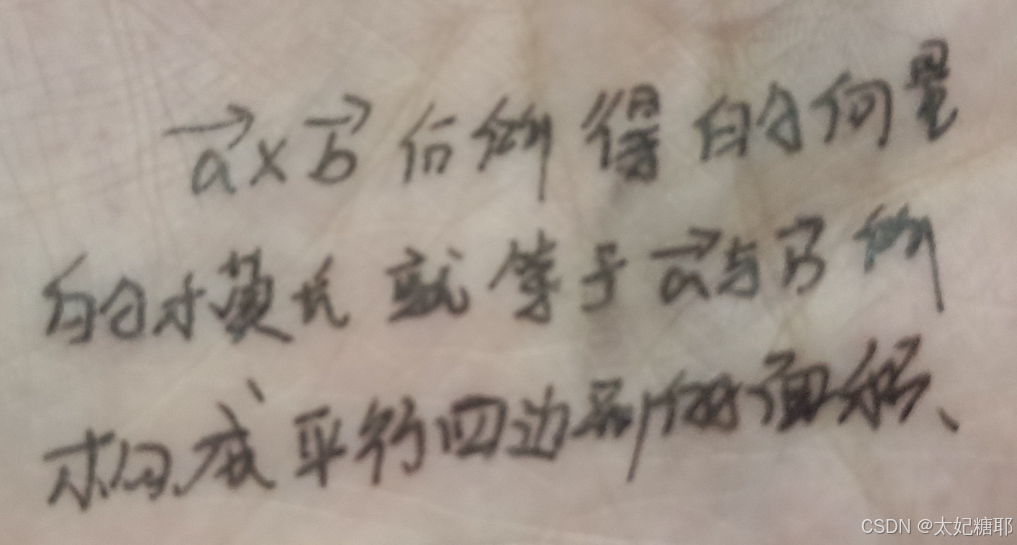 $\vec{a}$×$\vec{b}$后所得的向量
的模长就等于$\vec{a}$与$\vec{b}$所
构成平行四边形的面积、
CSDN @太妃糖耶